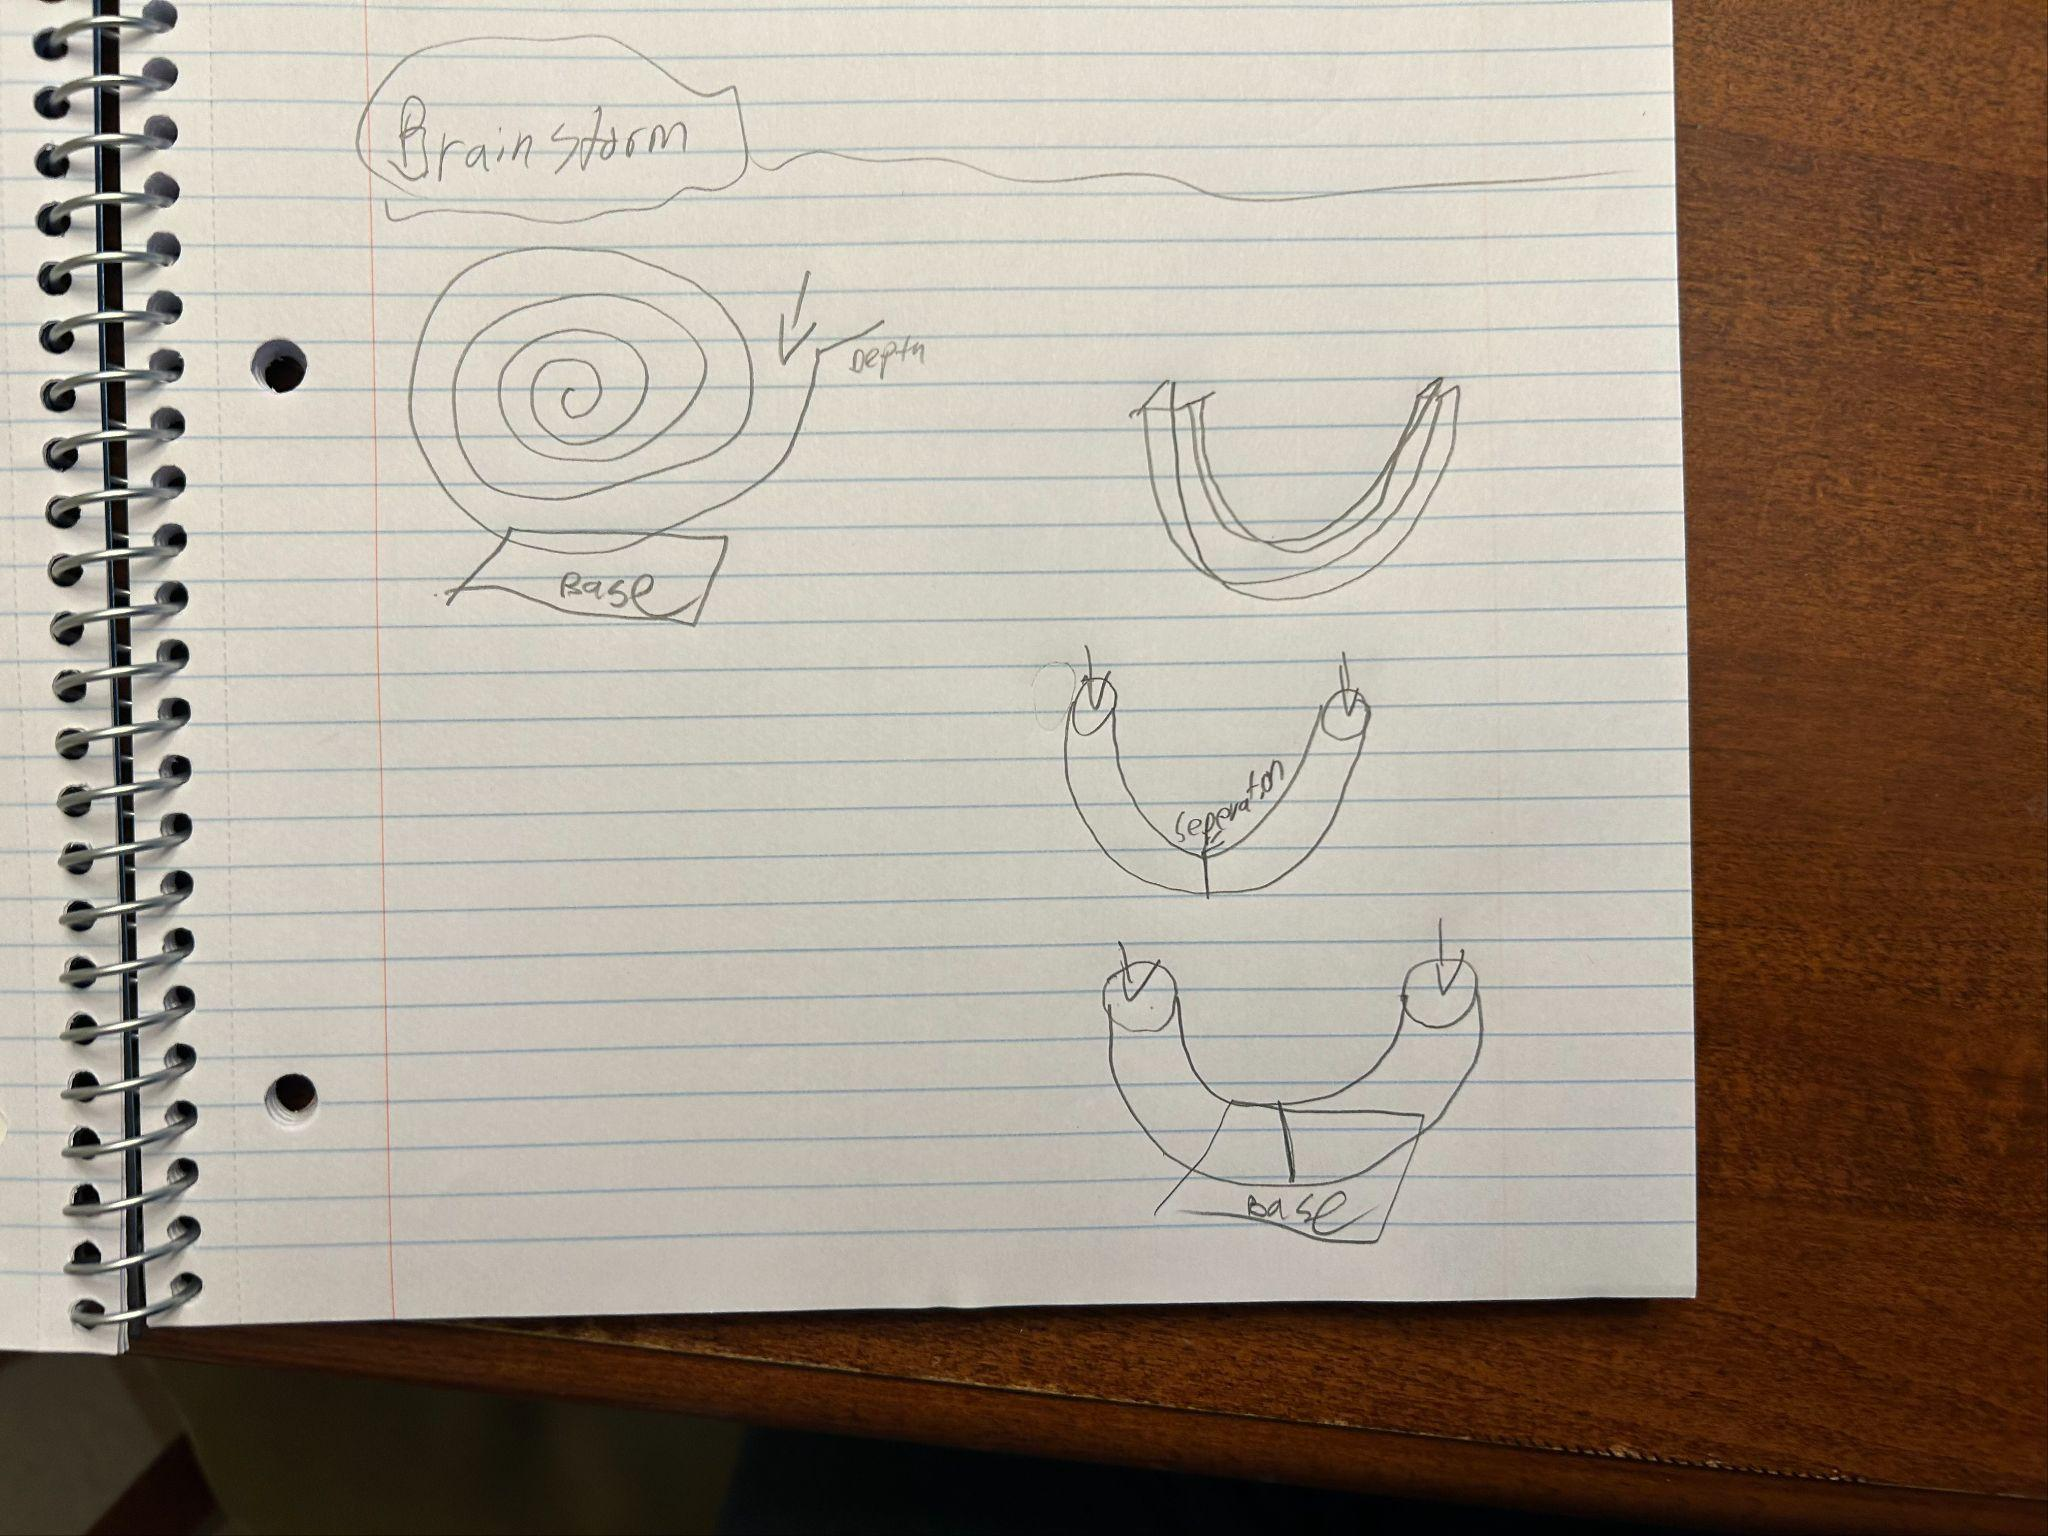 Brainstorm
Depth
Base
Seperation
Base